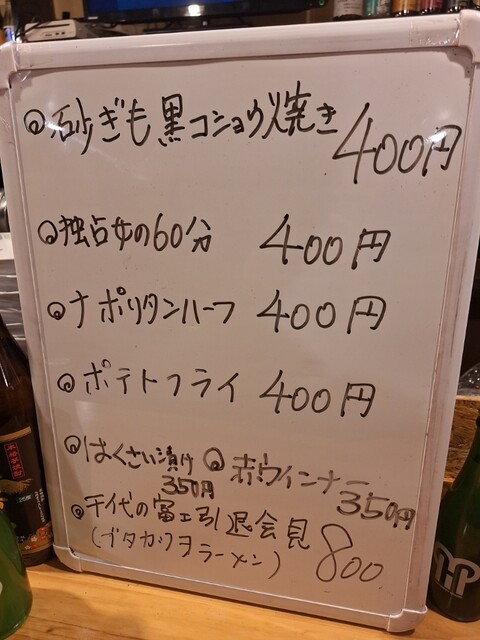 ◎砂ぎも黒コショウ焼き 400円
◎独占女の60分 400円
◎ナポリタンハーフ 400円
◎ポテトフライ 400円
◎はくさい漬け 350円 ◎赤ウインナー 350円
◎千代の富士引退会見 800
(ブタカツヲラーメン)